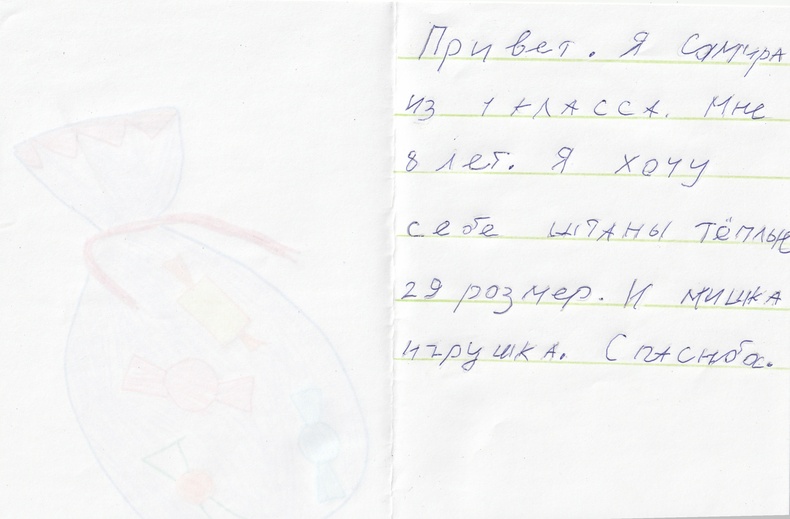 Привет. Я Самира
из 1 класса. Мне
8 лет. Я хочу
себе штаны тёплые
29 розмер. И мишка
игрушка. Спасиба.